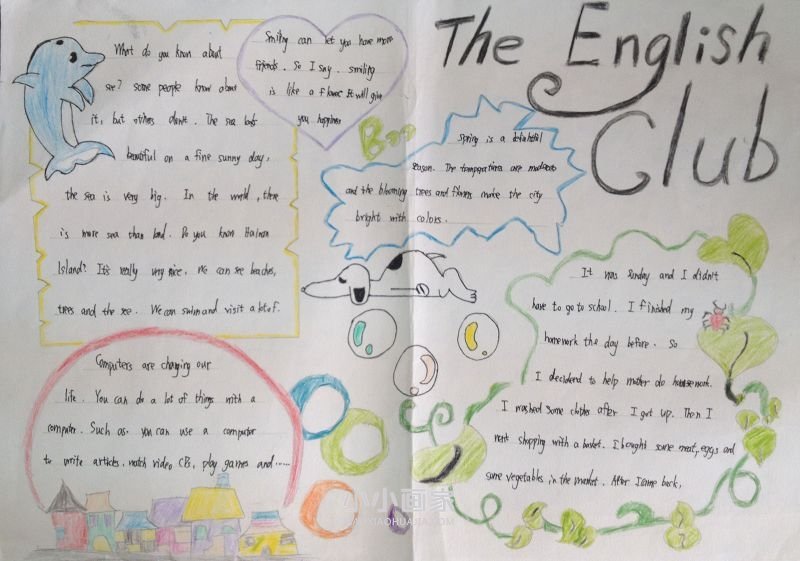 The English
Club
What do you know about
see? some people know about
it, but others don't. The sea looks
beautiful on a fine sunny day,
the sea is very big. In the world, there
is more sea than land. Do you know Hainan
Island? It's really very nice. We can see beaches,
trees and the see. We can swim and visit a lot of.
Smiling can let you have more
friends. So I say. smiling
is like a flower It will give
you happiness
Spring is a delightful
season. The temperatures are moderate
and the blooming trees and flowers make the city
bright with colors.
Computers are changing our
life. You can do a lot of things with a
computer. Such as. you can use a computer
to write articles. watch video CDs, play games and......
It was Sunday and I didn't
have to go to school. I finished my
homework the day before. So
I decidend to help mother do housework.
I washed some clothes after I got up. Then I
went shopping with a basket. I bought some meat, eggs and
some vegetables in the market. After I came back,
小小画家